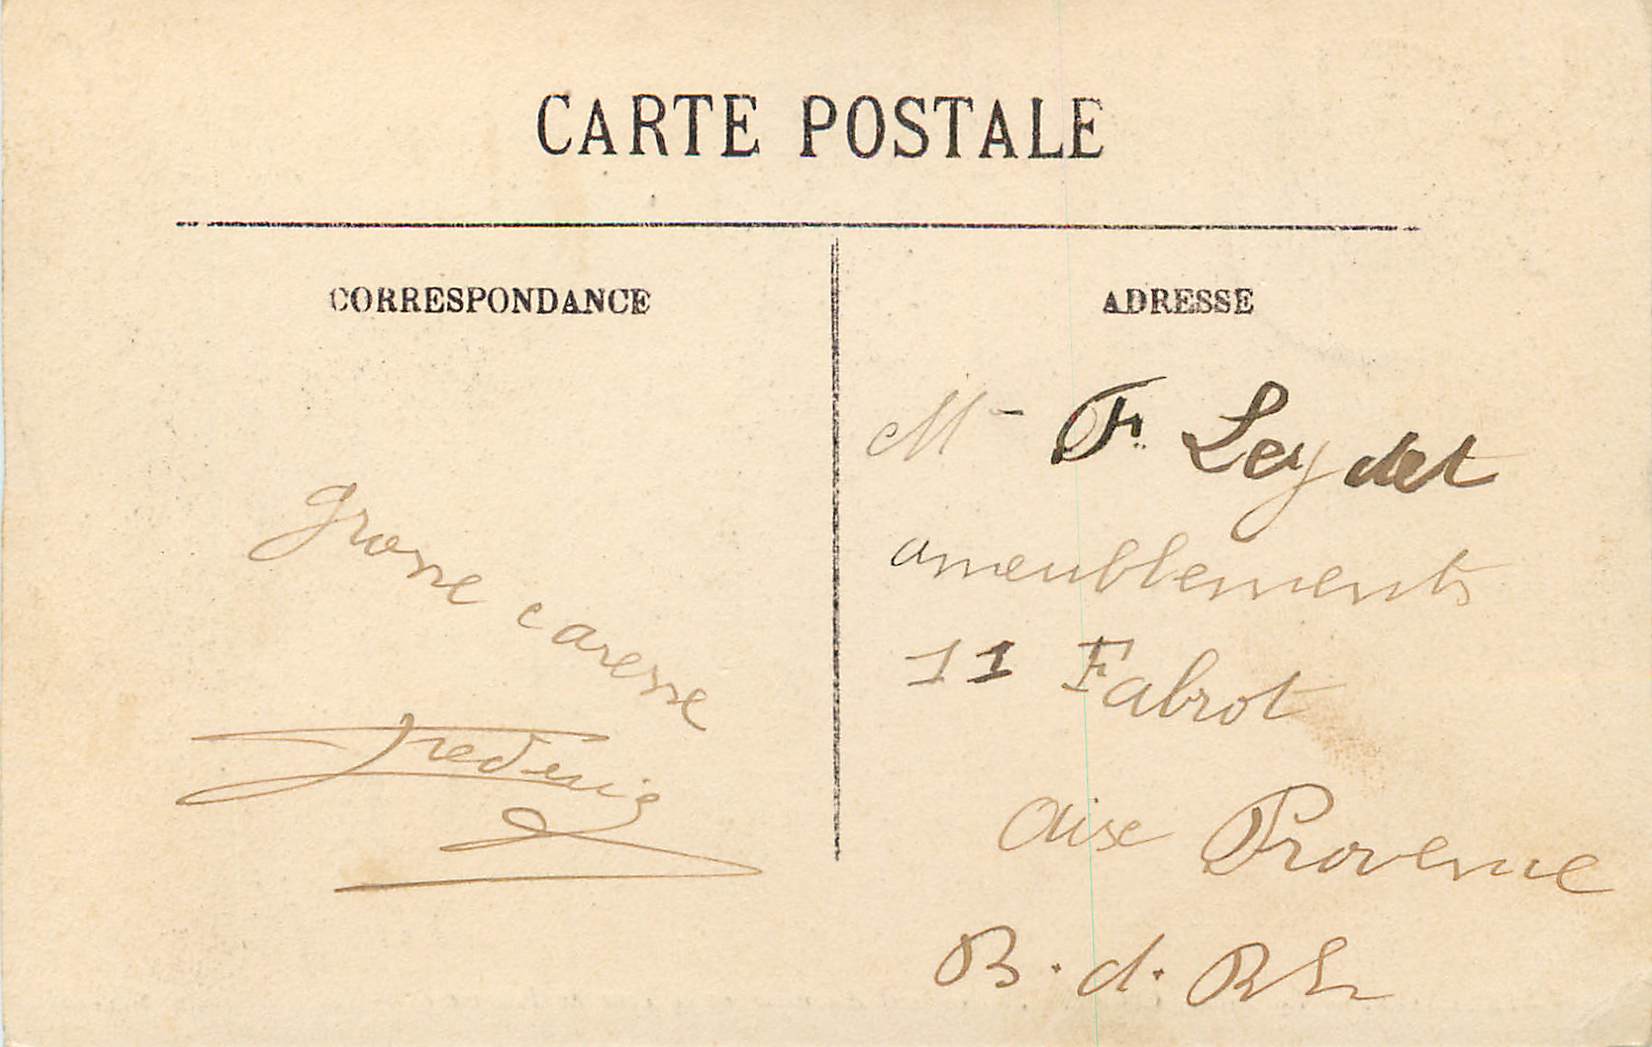 CARTE POSTALE
CORRESPONDANCE
grosse caresse
Frederic
ADRESSE
M- F. Leydet
ameublements
11 Fabrot
Aix Provence
B. d. Rh